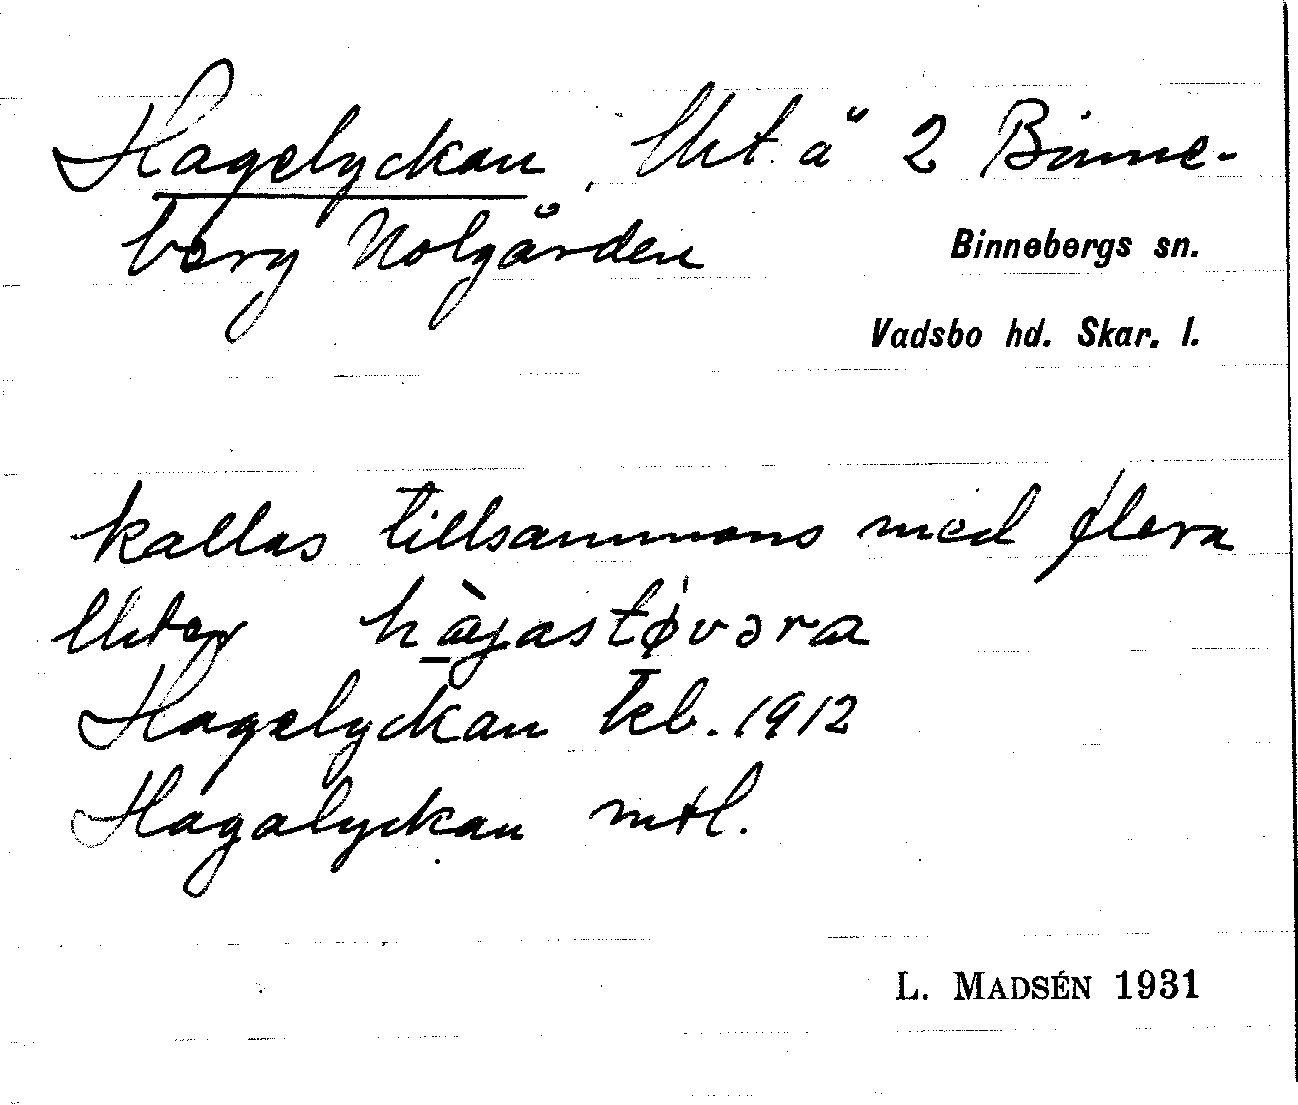 Hagelyckan, lht. å 2 Binne-
berg Nolgården
Binnebergs sn.
Vadsbo hd. Skar. l.
kallas tillsammans med flera
lhter hàgastøvəra
Hagelyckan Ekb. 1912
Hagalyckan mtl.
L. MADSÉN 1931